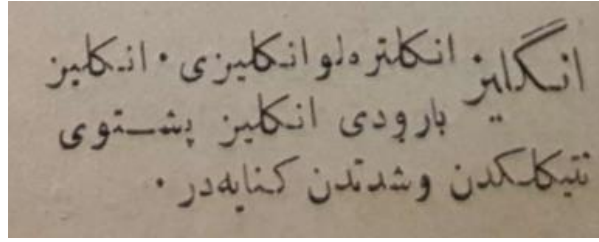 انگلیز انکلتره‌لو انکلیزی · انکلیز
بارودی انکلیز پشتوی
تیتیکلکدن وشدتدن کنایه‌در ·